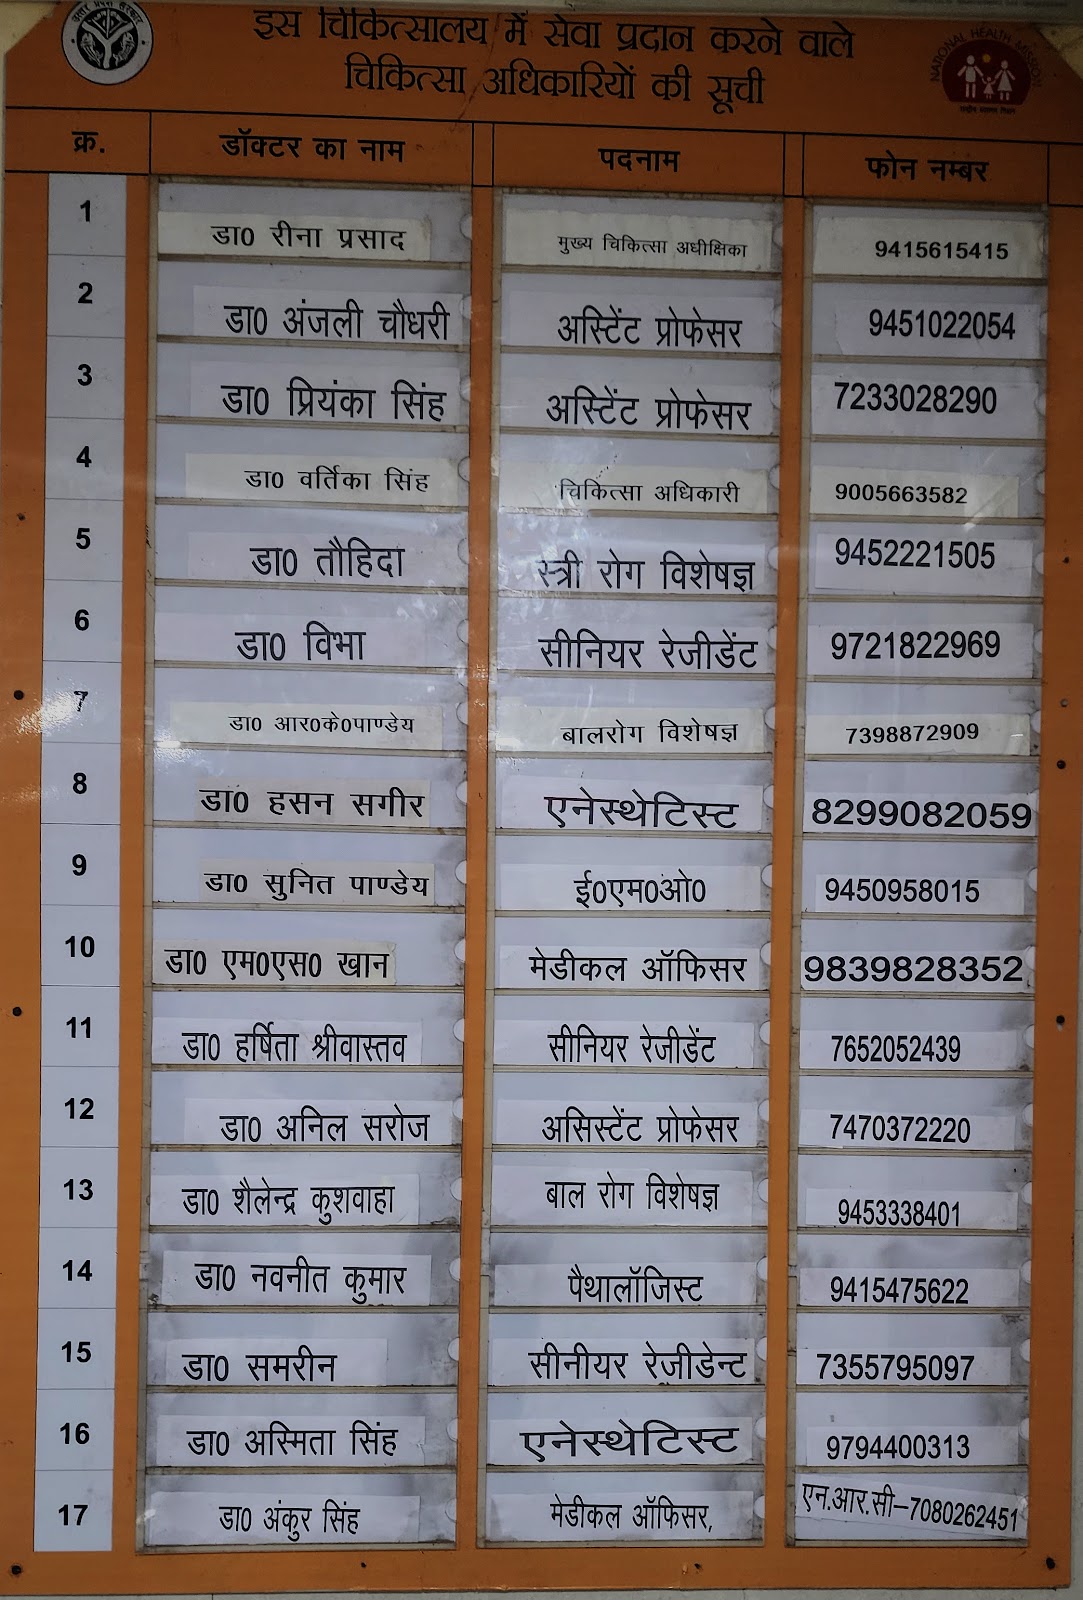 उत्तर प्रदेश सरकार
इस चिकित्सालय में सेवा प्रदान करने वाले
चिकित्सा अधिकारियों की सूची
NATIONAL HEALTH MISSION
राष्ट्रीय स्वास्थ्य मिशन
क्र. डॉक्टर का नाम पदनाम फोन नम्बर
1 डा0 रीना प्रसाद मुख्य चिकित्सा अधीक्षिका 9415615415
2 डा0 अंजली चौधरी अस्टिेंट प्रोफेसर 9451022054
3 डा0 प्रियंका सिंह अस्टिेंट प्रोफेसर 7233028290
4 डा0 वर्तिका सिंह चिकित्सा अधिकारी 9005663582
5 डा0 तौहिदा स्त्री रोग विशेषज्ञ 9452221505
6 डा0 विभा सीनियर रेजीडेंट 9721822969
7 डा0 आर0के0पाण्डेय बालरोग विशेषज्ञ 7398872909
8 डा0 हसन सगीर एनेस्थेटिस्ट 8299082059
9 डा0 सुनित पाण्डेय ई0एम0ओ0 9450958015
10 डा0 एम0एस0 खान मेडीकल ऑफिसर 9839828352
11 डा0 हर्षिता श्रीवास्तव सीनियर रेजीडेंट 7652052439
12 डा0 अनिल सरोज असिस्टेंट प्रोफेसर 7470372220
13 डा0 शैलेन्द्र कुशवाहा बाल रोग विशेषज्ञ 9453338401
14 डा0 नवनीत कुमार पैथालॉजिस्ट 9415475622
15 डा0 समरीन सीनीयर रेजीडेन्ट 7355795097
16 डा0 अस्मिता सिंह एनेस्थेटिस्ट 9794400313
17 डा0 अंकुर सिंह मेडीकल ऑफिसर, एन.आर.सी–7080262451